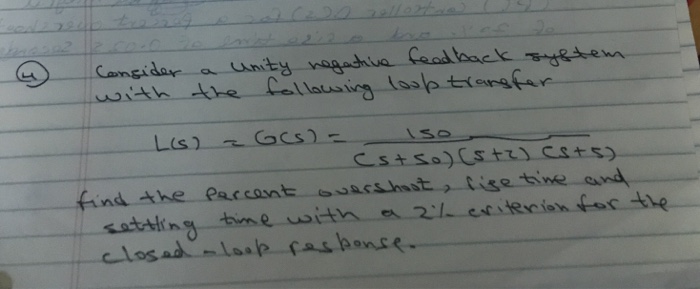 (4) Consider a unity negative feedback system
with the following loop transfer
L(s) = G(s) = 150
(s+50)(s+2)(s+5)
find the percent overshoot, rise time and
settling time with a 2% criterion for the
closed-loop response.